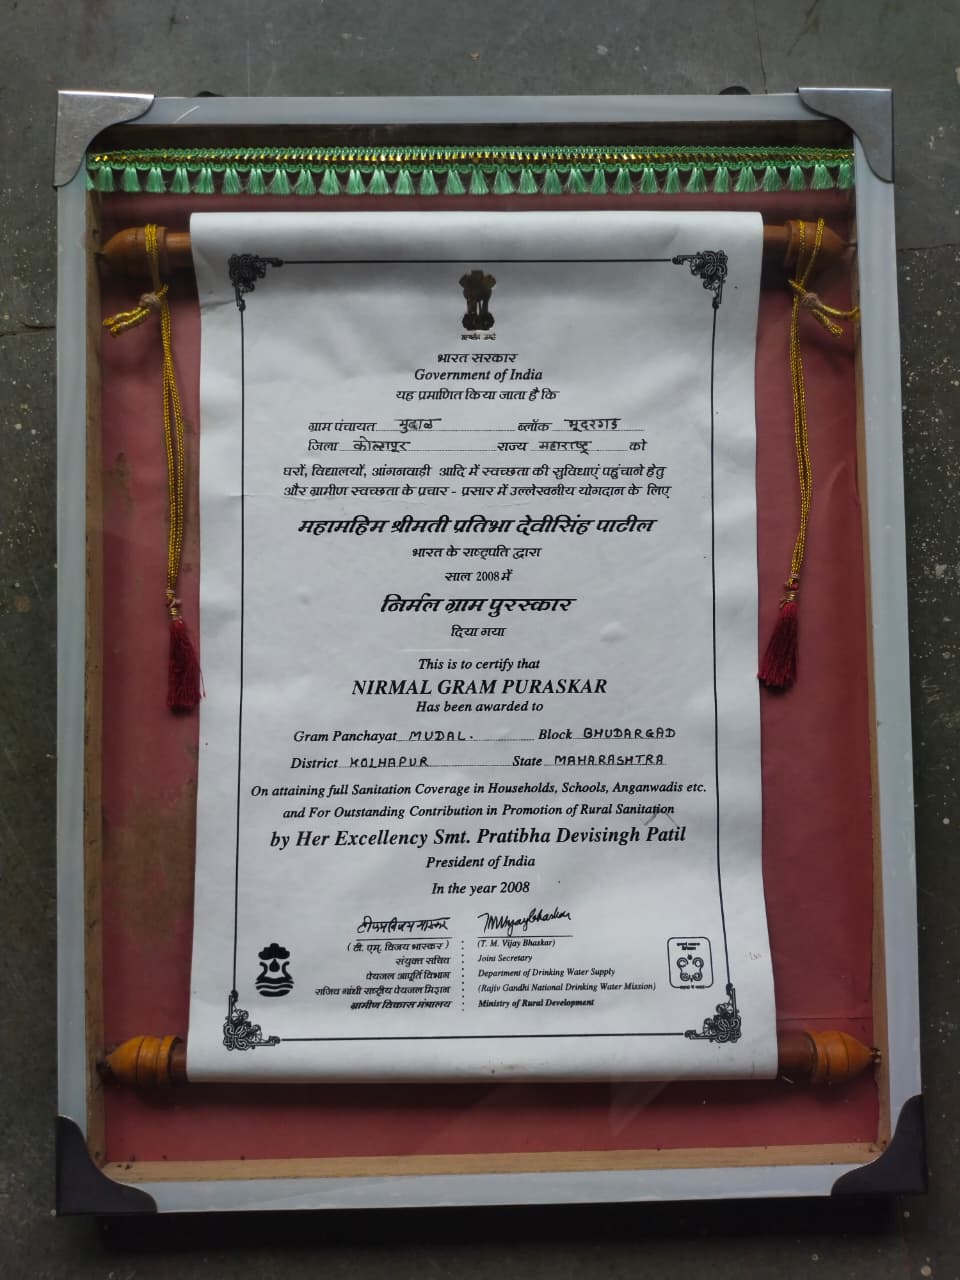 सत्यमेव जयते
भारत सरकार
Government of India
यह प्रमाणित किया जाता है कि
ग्राम पंचायत मुदाळ ब्लॉक भूदरगड
जिला कोल्हापूर राज्य महाराष्ट्र को
घरों, विद्यालयों, आंगनवाडी आदि में स्वच्छता की सुविधाएं पहुंचाने हेतु
और ग्रामीण स्वच्छता के प्रचार - प्रसार में उल्लेखनीय योगदान के लिए
महामहिम श्रीमती प्रतिभा देवीसिंह पाटील
भारत के राष्ट्रपति द्वारा
साल 2008 में
निर्मल ग्राम पुरस्कार
दिया गया
This is to certify that
NIRMAL GRAM PURASKAR
Has been awarded to
Gram Panchayat MUDAL. Block BHUDARGAD
District KOLHAPUR State MAHARASHTRA
On attaining full Sanitation Coverage in Households, Schools, Anganwadis etc.
and For Outstanding Contribution in Promotion of Rural Sanitation
by Her Excellency Smt. Pratibha Devisingh Patil
President of India
In the year 2008
(टी. एम. विजय भास्कर) : (T. M. Vijay Bhaskar)
संयुक्त सचिव : Joint Secretary
पेयजल आपूर्ति विभाग : Department of Drinking Water Supply
राजिव गांधी राष्ट्रीय पेयजल मिशन : (Rajiv Gandhi National Drinking Water Mission)
ग्रामीण विकास मंत्रालय : Ministry of Rural Development